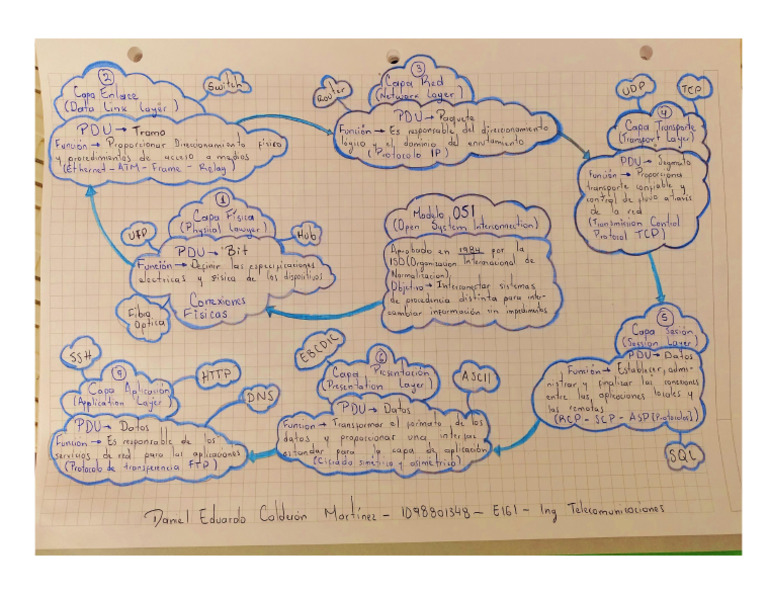 2
Capa Enlace
(Data Link Layer)
Switch
PDU → Tramo
Función → Proporcionar Direccionamiento Físico
y procedimientos de acceso a medios
(Ethernet - ATM - Frame - Relay)
3
Capa Red
(Network Layer)
Router
PDU → Paquete
Función → Es responsable del direccionamiento
lógico y el dominio del enrutamiento
(Protocolo IP)
UDP
TCP
4
Capa Transporte
(Transport Layer)
PDU → Segmento
Función → Proporciona
transporte confiable y
control de flujo a través
de la red
(Transmission Control
Protocol TCP)
1
Capa Física
(Physical Lawyer)
UTP
Hub
PDU → Bit
Función → Definir las especificaciones
electricas y física de los dispositivos
Conexiones
Físicas
Fibra
Optica
Modelo OSI
(Open System Interconnection)
Aprobado en 1984 por la
ISO (Organización Internacional de
Normalización)
Objetivo → Interconectar sistemas
de procedencia distinta para inter-
cambiar información sin impedimentos
5
Capa Sesión
(Session Layer)
PDU → Datos
Función → Establecer, admi-
nistrar y finalizar las conexiones
entre las aplicaciones locales y
las remotas
(RCP - SCP - ASP [Protocolos])
SQL
EBCDIC
6
Capa Presentación
(Presentation Layer)
ASCII
PDU → Datos
Función → Transformar el formato de los
datos y proporcionar una interfas
estandar para la capa de aplicación
(Cifrado simetrico y asimetrico)
SSH
Capa Aplicación
(Application Layer)
HTTP
DNS
PDU → Datos
Función → Es responsable de los
servicios de red para las aplicaciones
(Protocolo de transferencia FTP)
Daniel Eduardo Calderón Martínez - ID98801348 - E161 - Ing Telecomunicaciones